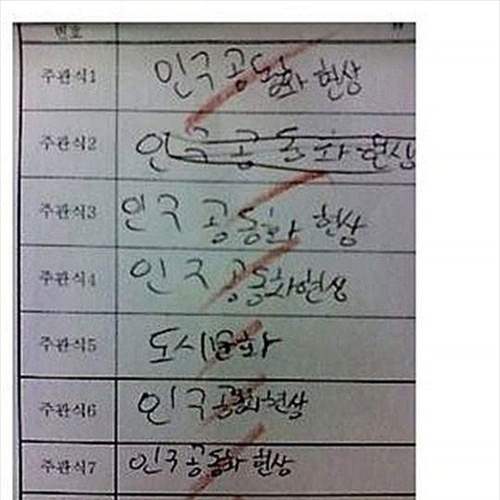 번호
주관식1 인구공동화 현상
주관식2 인구공동화현상
주관식3 인구 공동화 현상
주관식4 인구공동화현상
주관식5 도시문화
주관식6 인구공동화현상
주관식7 인구공동화 현상